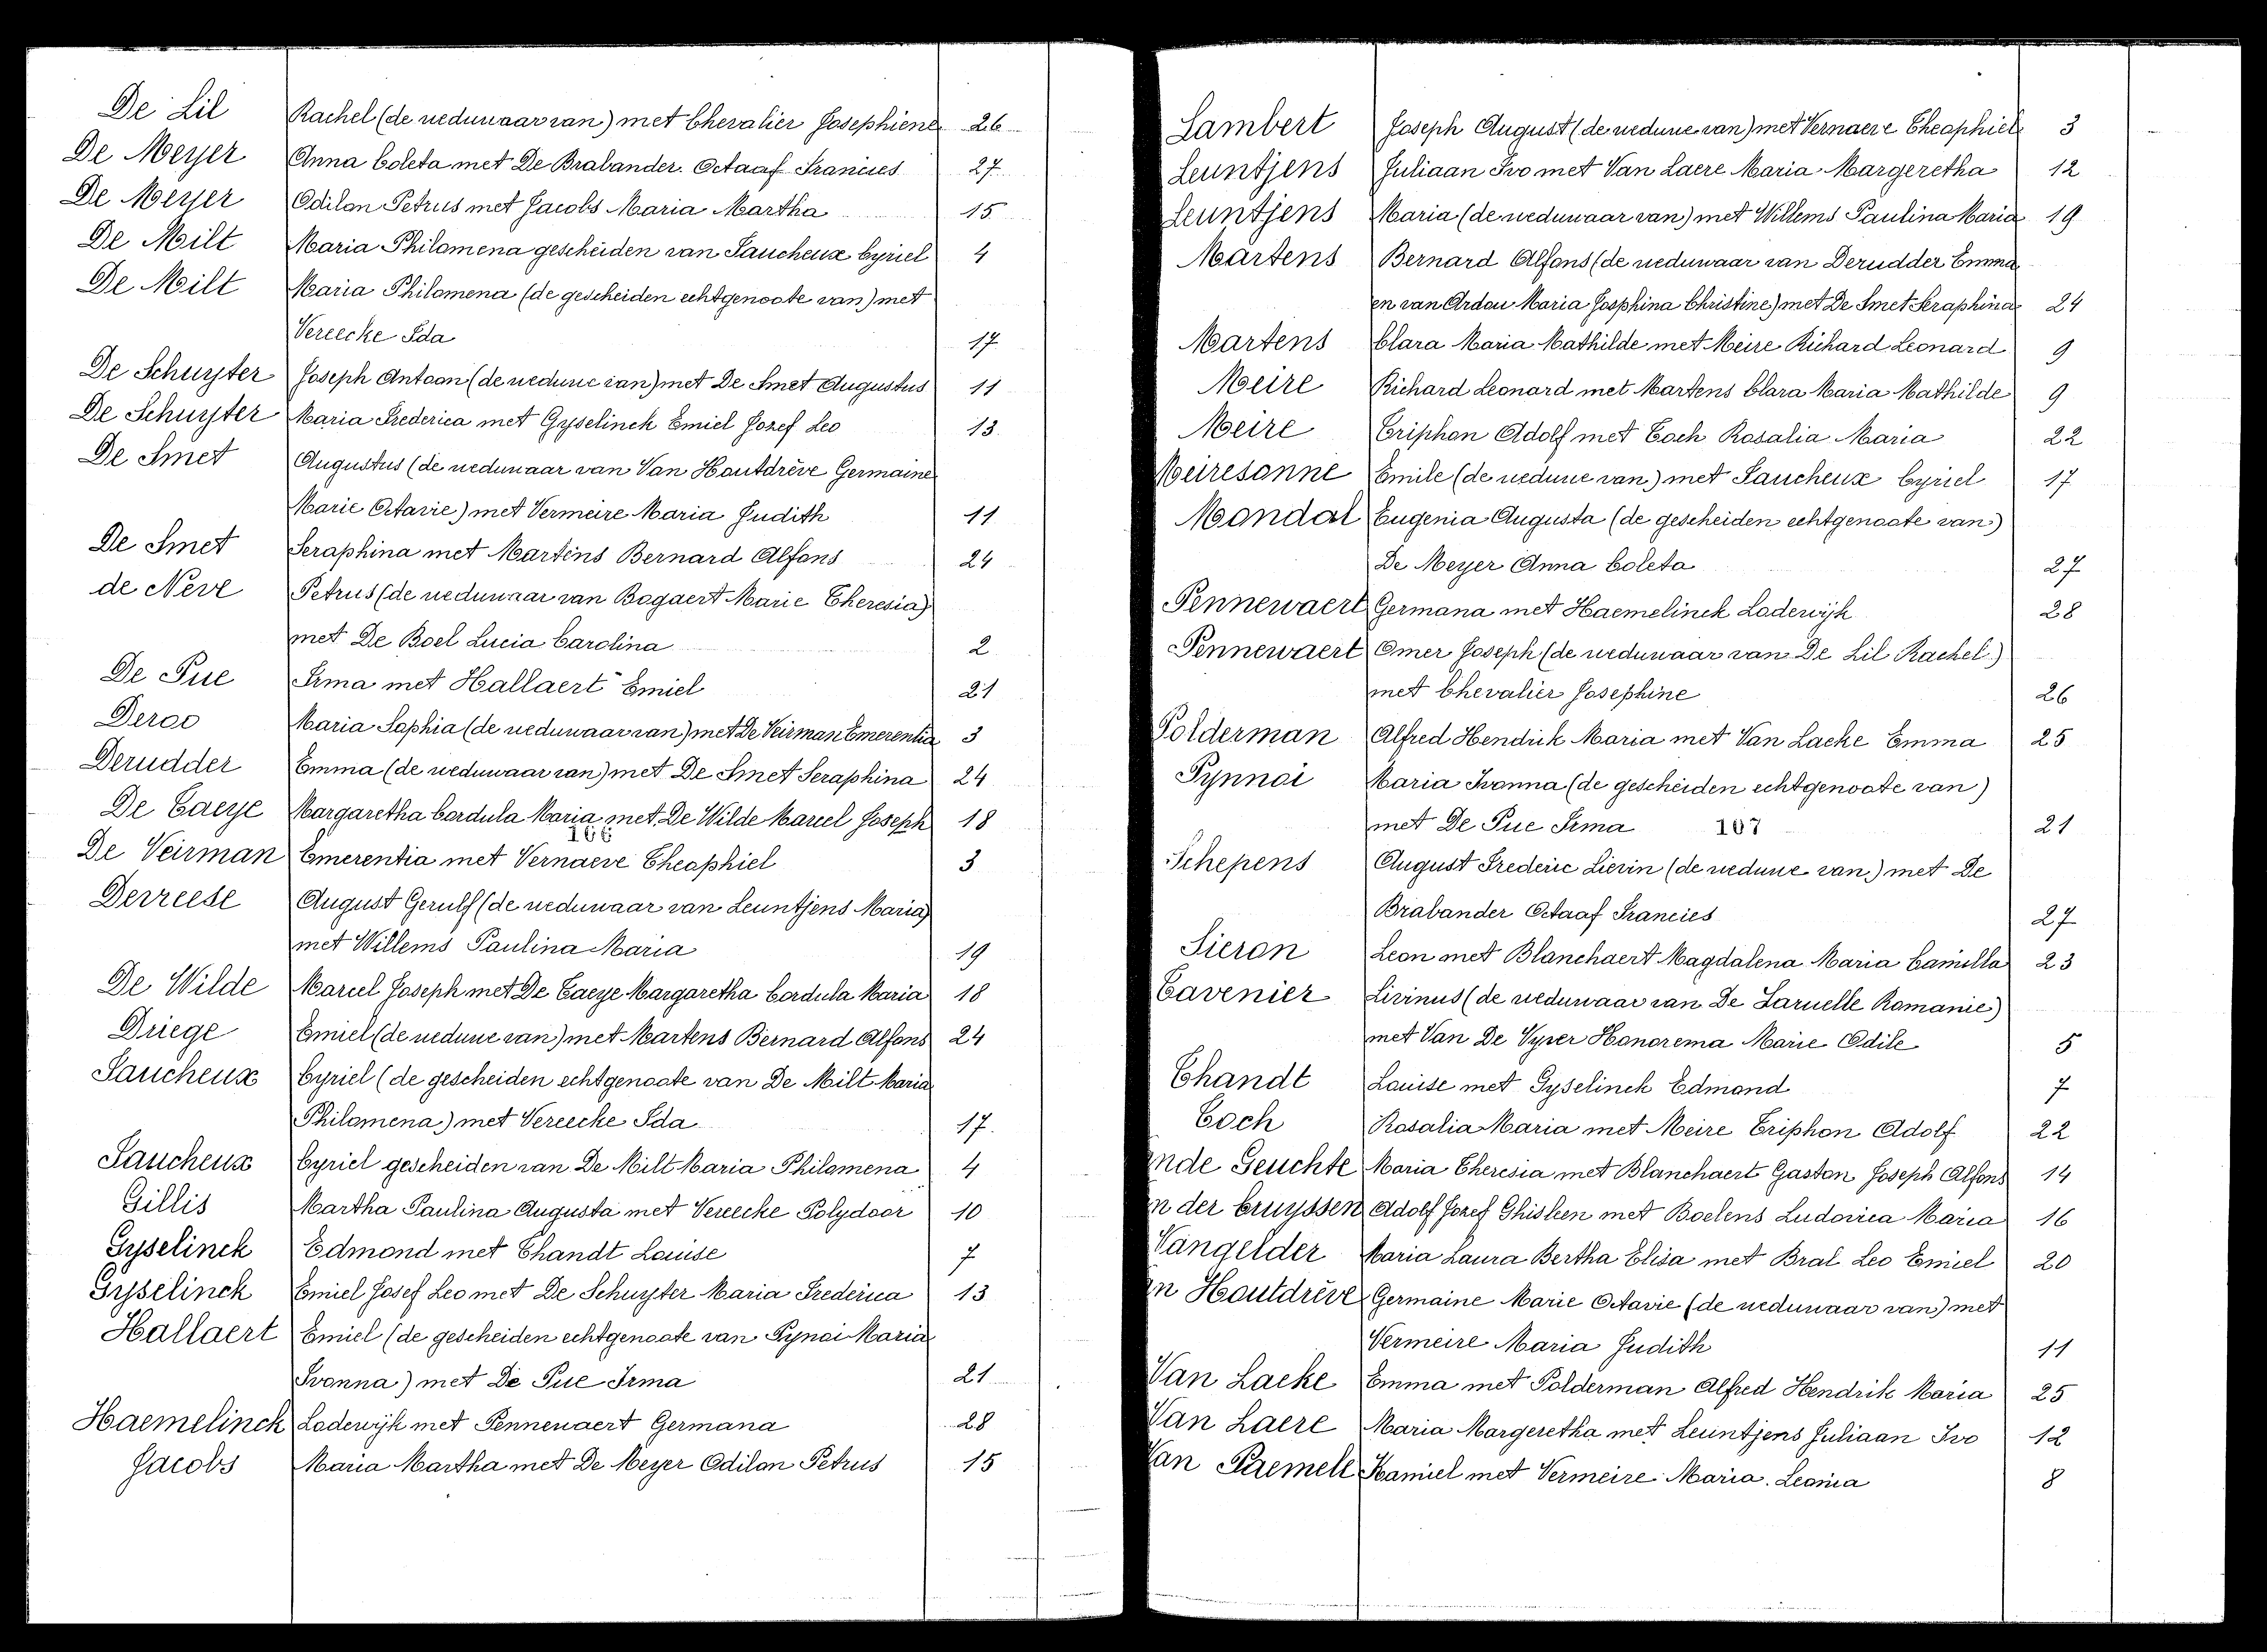 De Lil Rachel (de weduwaar van) met Chevalier Josephiene 26
De Meyer Anna Coleta met De Brabander Octaaf Francies 27
De Meyer Odilon Petrus met Jacobs Maria Martha 15
De Milt Maria Philomena gescheiden van Faucheux Cyriel 4
De Milt Maria Philomena (de gescheiden echtgenoote van) met
Vereecke Ida 17
De Schuyter Joseph Antoon (de weduwe van) met De Smet Augustus 11
De Schuyter Maria Frederica met Gyselinck Emiel Jozef Leo 13
De Smet Augustus (de weduwaar van Van Houtdrève Germaine
Marie Octavie) met Vermeire Maria Judith 11
De Smet Seraphina met Martens Bernard Alfons 24
de Neve Petrus (de weduwaar van Bogaert Marie Theresia)
met De Boel Lucia Carolina 2
De Pue Irma met Hallaert Emiel 21
Deroo Maria Sophia (de weduwaar van) met De Veirman Emerentia 3
Derudder Emma (de weduwaar van) met De Smet Seraphina 24
De Taeye Margaretha Cordula Maria met De Wilde Marcel Joseph 18
166
De Veirman Emerentia met Vernaeve Theophiel 3
Devreese August Gerulf (de weduwaar van Leuntjens Maria)
met Willems Paulina Maria 19
De Wilde Marcel Joseph met De Taeye Margaretha Cordula Maria 18
Driege Emiel (de weduwe van) met Martens Bernard Alfons 24
Faucheux Cyriel (de gescheiden echtgenoote van De Milt Maria
Philomena) met Vereecke Ida 17.
Faucheux Cyriel gescheiden van De Milt Maria Philomena 4
Gillis Martha Paulina Augusta met Vereecke Polydoor 10
Gyselinck Edmond met Thandt Louise 7
Gyselinck Emiel Josef Leo met De Schuyter Maria Frederica 13
Hallaert Emiel (de gescheiden echtgenoote van Pynoi Maria
Ivonna) met De Pue Irma 21
Haemelinck Lodewijk met Pennewaert Germana 28
Jacobs Maria Martha met De Meyer Odilon Petrus 15
Lambert Joseph August (de weduwe van) met Vernaeve Theophiele 3
Leuntjens Juliaan Ivo met Van Laere Maria Margeretha 12
Leuntjens Maria (de weduwaar van) met Willems Paulina Maria 19
Martens Bernard Alfons (de weduwaar van Derudder Emma
en van Ardou Maria Josphina Christine) met De Smet Seraphina 24
Martens Clara Maria Mathilde met Meire Richard Leonard 9
Meire Richard Leonard met Martens Clara Maria Mathilde 9
Meire Triphon Adolf met Toch Rosalia Maria 22
Meiresonne Emile (de weduwe van) met Faucheux Cyriel 17
Mondal Eugenia Augusta (de gescheiden echtgenoote van)
De Meyer Anna Coleta 27
Pennewaert Germana met Haemelinck Lodewijk 28
Pennewaert Omer Joseph (de weduwaar van De Lil Rachel)
met Chevalier Josephine 26
Polderman Alfred Hendrik Maria met Van Lacke Emma 25
Pynnoi Maria Ivonna (de gescheiden echtgenoote van)
met De Pue Irma 167 21
Schepens August Frederic Lievin (de weduwe van) met De
Brabander Octaaf Francies 27
Sieron Leon met Blanchaert Magdalena Maria Camilla 23
Tavenier Livinus (de weduwaar van De Laruelle Romanie)
met Van De Vyver Honorema Marie Odile 5
Thandt Louise met Gyselinck Edmond 7
Toch Rosalia Maria met Meire Triphon Adolf 22
nde Geuchte Maria Theresia met Blanchaert Gaston Joseph Alfons 14
n der Cruyssen Adolf Jozef Ghisleen met Boelens Ludovica Maria 16
Vangelder Maria Laura Bertha Elisa met Bral Leo Emiel 20
an Houtdrève Germaine Marie Octavie (de weduwaar van) met
Vermeire Maria Judith 11
Van Lacke Emma met Polderman Alfred Hendrik Maria 25
Van Laere Maria Margeretha met Leuntjens Juliaan Ivo 12
Van Paemele Kamiel met Vermeire Maria Leonia 8